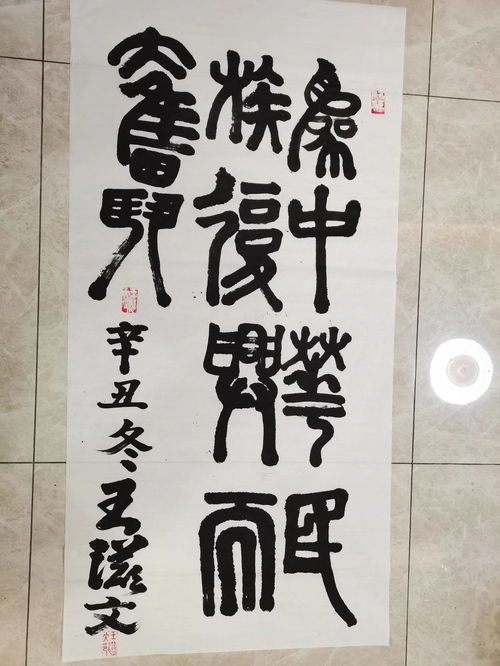 為中華民
族復興而
奮鬥
辛丑冬王滋文